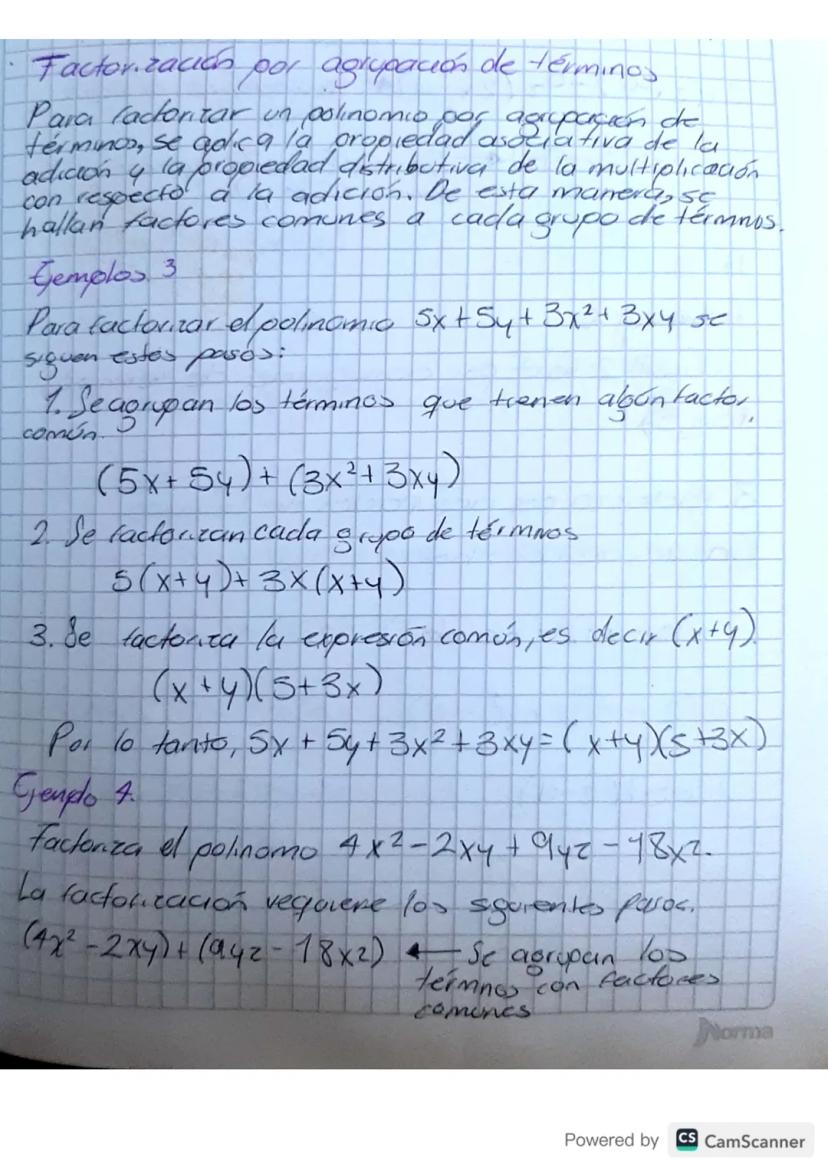 Factorización por agrupación de términos
Para factorizar un polinomio por agrupación de
términos, se aplica la propiedad asociativa de la
adición y la propiedad distributiva de la multiplicación
con respecto a la adición. De esta manera, se
hallan factores comunes a cada grupo de términos.
Ejemplos 3
Para factorizar el polinomio 5x + 5y + 3x² + 3xy se
siguen estos pasos:
1. Se agrupan los términos que tienen algún factor
común.
(5x + 5y) + (3x² + 3xy)
2. Se factorizan cada grupo de términos
5(x+y) + 3x(x+y)
3. Se factoriza la expresión común, es decir (x+y).
(x+y)(5+3x)
Por lo tanto, 5x + 5y + 3x² + 3xy = (x+y)(5+3x)
Ejemplo 4.
Factoriza el polinomo 4x² - 2xy + 9yz - 18xz.
La factorización requiere los sguientes pasos.
(4x² - 2xy) + (9yz - 18xz) ← Se agrupan los
términos con factores
comunes
Norma
Powered by CS CamScanner